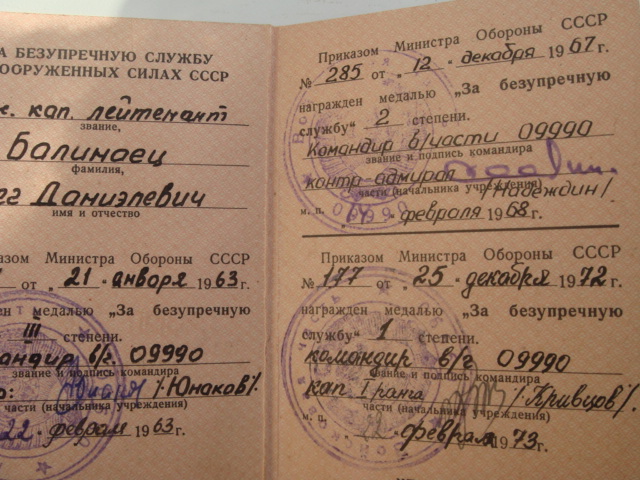 А БЕЗУПРЕЧНУЮ СЛУЖБУ
ООРУЖЕННЫХ СИЛАХ СССР
кап. лейтенант
звание,
Балинаец
фамилия,
Даниэлевич
имя и отчество
риказом Министра Обороны СССР
от „21" января 1963 г.
ен медалью „За безупречную
III степени.
андир в/ч 09990
звание и подпись командира
/Юнаков/.
части (начальника учреждения)
22 феврам 1963 г.
Приказом Министра Обороны СССР
№ 285 от „12" декабря 1967 г.
награжден медалью „За безупречную
службу" 2 степени.
Командир в/части 09990
звание и подпись командира
контр-адмирал
части (начальника учреждения)
/Надеждин/
м. п. февраля 1968 г.
Приказом Министра Обороны СССР
№ 177 от „25" декабря 1972 г.
награжден медалью „За безупречную
службу" 1 степени.
командир в/г 09990
звание и подпись командира
кап. I ранга /Кривцов/.
части (начальника учреждения)
м. п. февраля 1973 г.